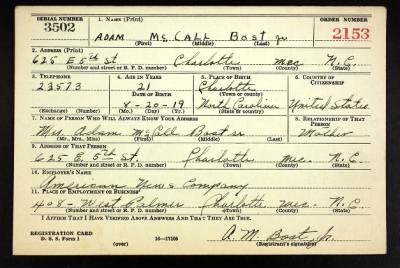 SERIAL NUMBER 1. NAME (Print) ORDER NUMBER
3502 ADAM McCALL Bost Jr 2153
(First) (Middle) (Last)
2. ADDRESS (Print)
625 E 5th St. Charlotte Mec N.C.
(Number and street or R. F. D. number) (Town) (County) (State)
3. TELEPHONE 4. AGE IN YEARS 5. PLACE OF BIRTH 6. COUNTRY OF CITIZENSHIP
23573 21 Charlotte
DATE OF BIRTH (Town or county)
8-20-19 North Carolina United States
(Exchange) (Number) (Mo.) (Day) (Yr.) (State or country)
7. NAME OF PERSON WHO WILL ALWAYS KNOW YOUR ADDRESS 8. RELATIONSHIP OF THAT PERSON
Mrs. Adam McCall Bost Sr Mother
(Mr., Mrs., Miss) (First) (Middle) (Last)
9. ADDRESS OF THAT PERSON
625 E. 5th St. Charlotte Mec. N.C.
(Number and street or R. F. D. number) (Town) (County) (State)
10. EMPLOYER'S NAME
American News Company
11. PLACE OF EMPLOYMENT OR BUSINESS
408 - West Palmer Charlotte, Mec. N.C
(Number and street or R. F. D. number) (Town) (County) (State)
I AFFIRM THAT I HAVE VERIFIED ABOVE ANSWERS AND THAT THEY ARE TRUE.
REGISTRATION CARD
D. S. S. Form 1 (over) 16-17105 A. M. Bost Jr.
(Registrant's signature)